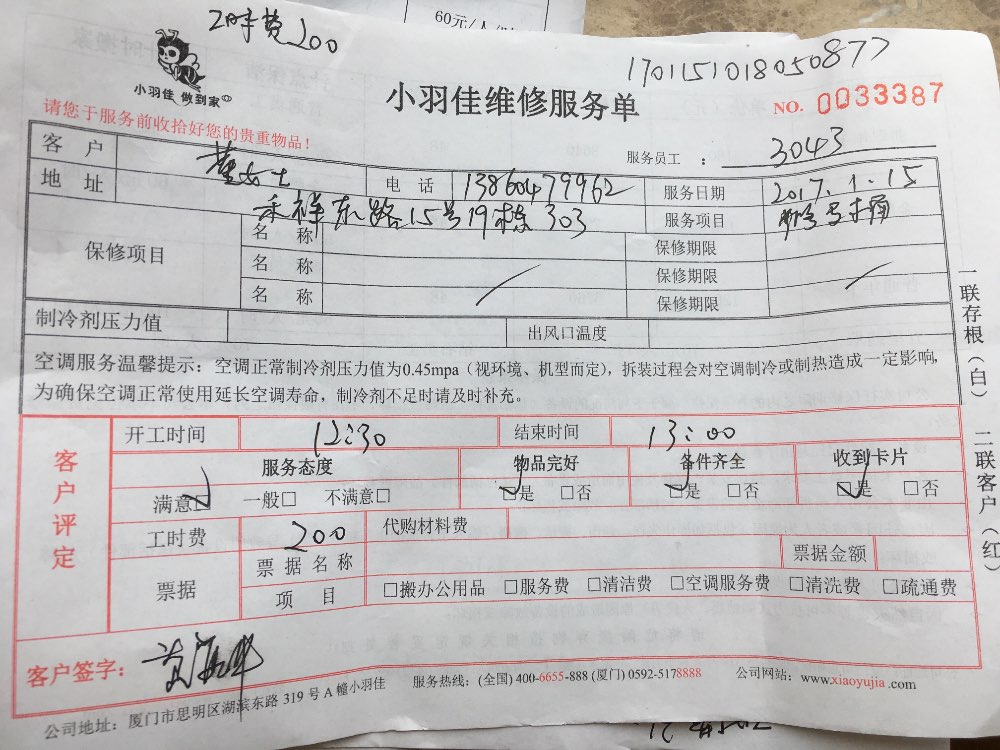 60元/人/
工时费200
小羽佳 做到家
170115101805087７
小羽佳维修服务单
NO. 0033387
请您于服务前收拾好您的贵重物品!
服务员工 : 3043
客户 女士 电话 13860479962 服务日期 2017.1.15
地址 禾祥东路15号19栋303 服务项目
保修项目 名称 保修期限
名称 保修期限
名称 保修期限
制冷剂压力值 出风口温度
空调服务温馨提示: 空调正常制冷剂压力值为0.45mpa(视环境、机型而定),拆装过程会对空调制冷或制热造成一定影响,
为确保空调正常使用延长空调寿命,制冷剂不足时请及时补充。
客户评定
开工时间 12:30 结束时间 13:00
服务态度 物品完好 备件齐全 收到卡片
满意□ 一般□ 不满意□ □是 □否 □是 □否 □是 □否
工时费 200 代购材料费
票据 票据名称 票据金额
项目 □搬办公用品 □服务费 □清洁费 □空调服务费 □清洗费 □疏通费
客户签字:
公司地址: 厦门市思明区湖滨东路 319 号 A 幢小羽佳 服务热线: (全国) 400-6655-888 (厦门) 0592-5178888 公司网站: www.xiaoyujia.com
一联存根(白) 二联客户(红)